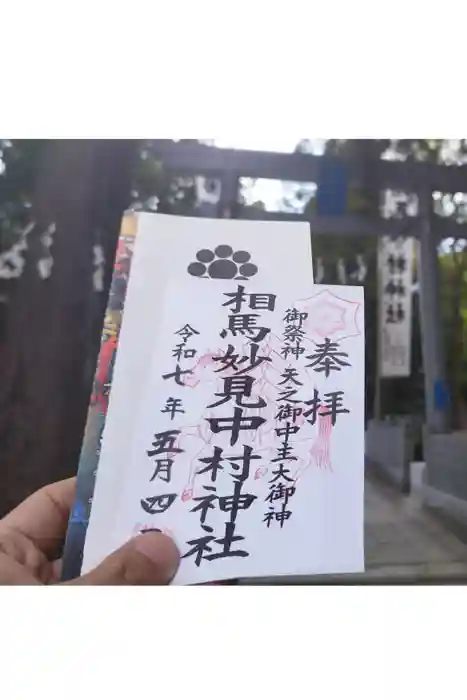 奉拝
御祭神 天之御中主大御神
相馬妙見中村神社
令和七年五月四
村神社